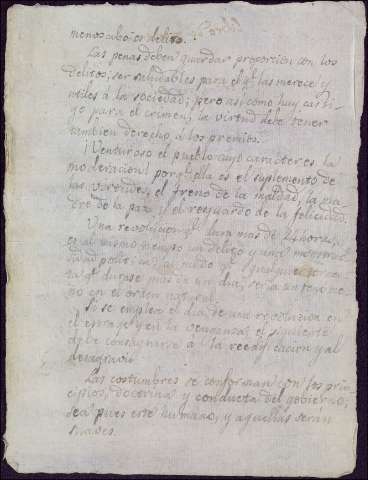 menoscabo es delito.
Las penas deben guardar proporcion con los
delitos; ser saludables para el q.e las merece y
utiles á la sociedad; pero asi como hay casti-
go para el crimen, la virtud debe tener
tambien derecho á los premios.
¡Venturoso el pueblo cuyo caracter es la
moderacion! porque ella es el suplemento de
las virtudes, el freno de la maldad, la ma-
dre de la paz y el resguardo de la felicidad.
Una revolucion q.e dura mas de 24 horas,
es al mismo tiempo un delito y una monstruo-
sidad politica; al modo q.e qualquier tormen-
ta q.e durase mas de un dia, seria un feno me-
no en el orden natural.
Si se emplea el dia de una revolucion en
el estrago y en la venganza el siguiente
debe consagrarse á la reedificacion y al
desagravio.
Las costumbres se conforman con los prin-
cipios, doctrina y conducta del gobierno;
sea pues este humano, y aquellas serán
suaves.